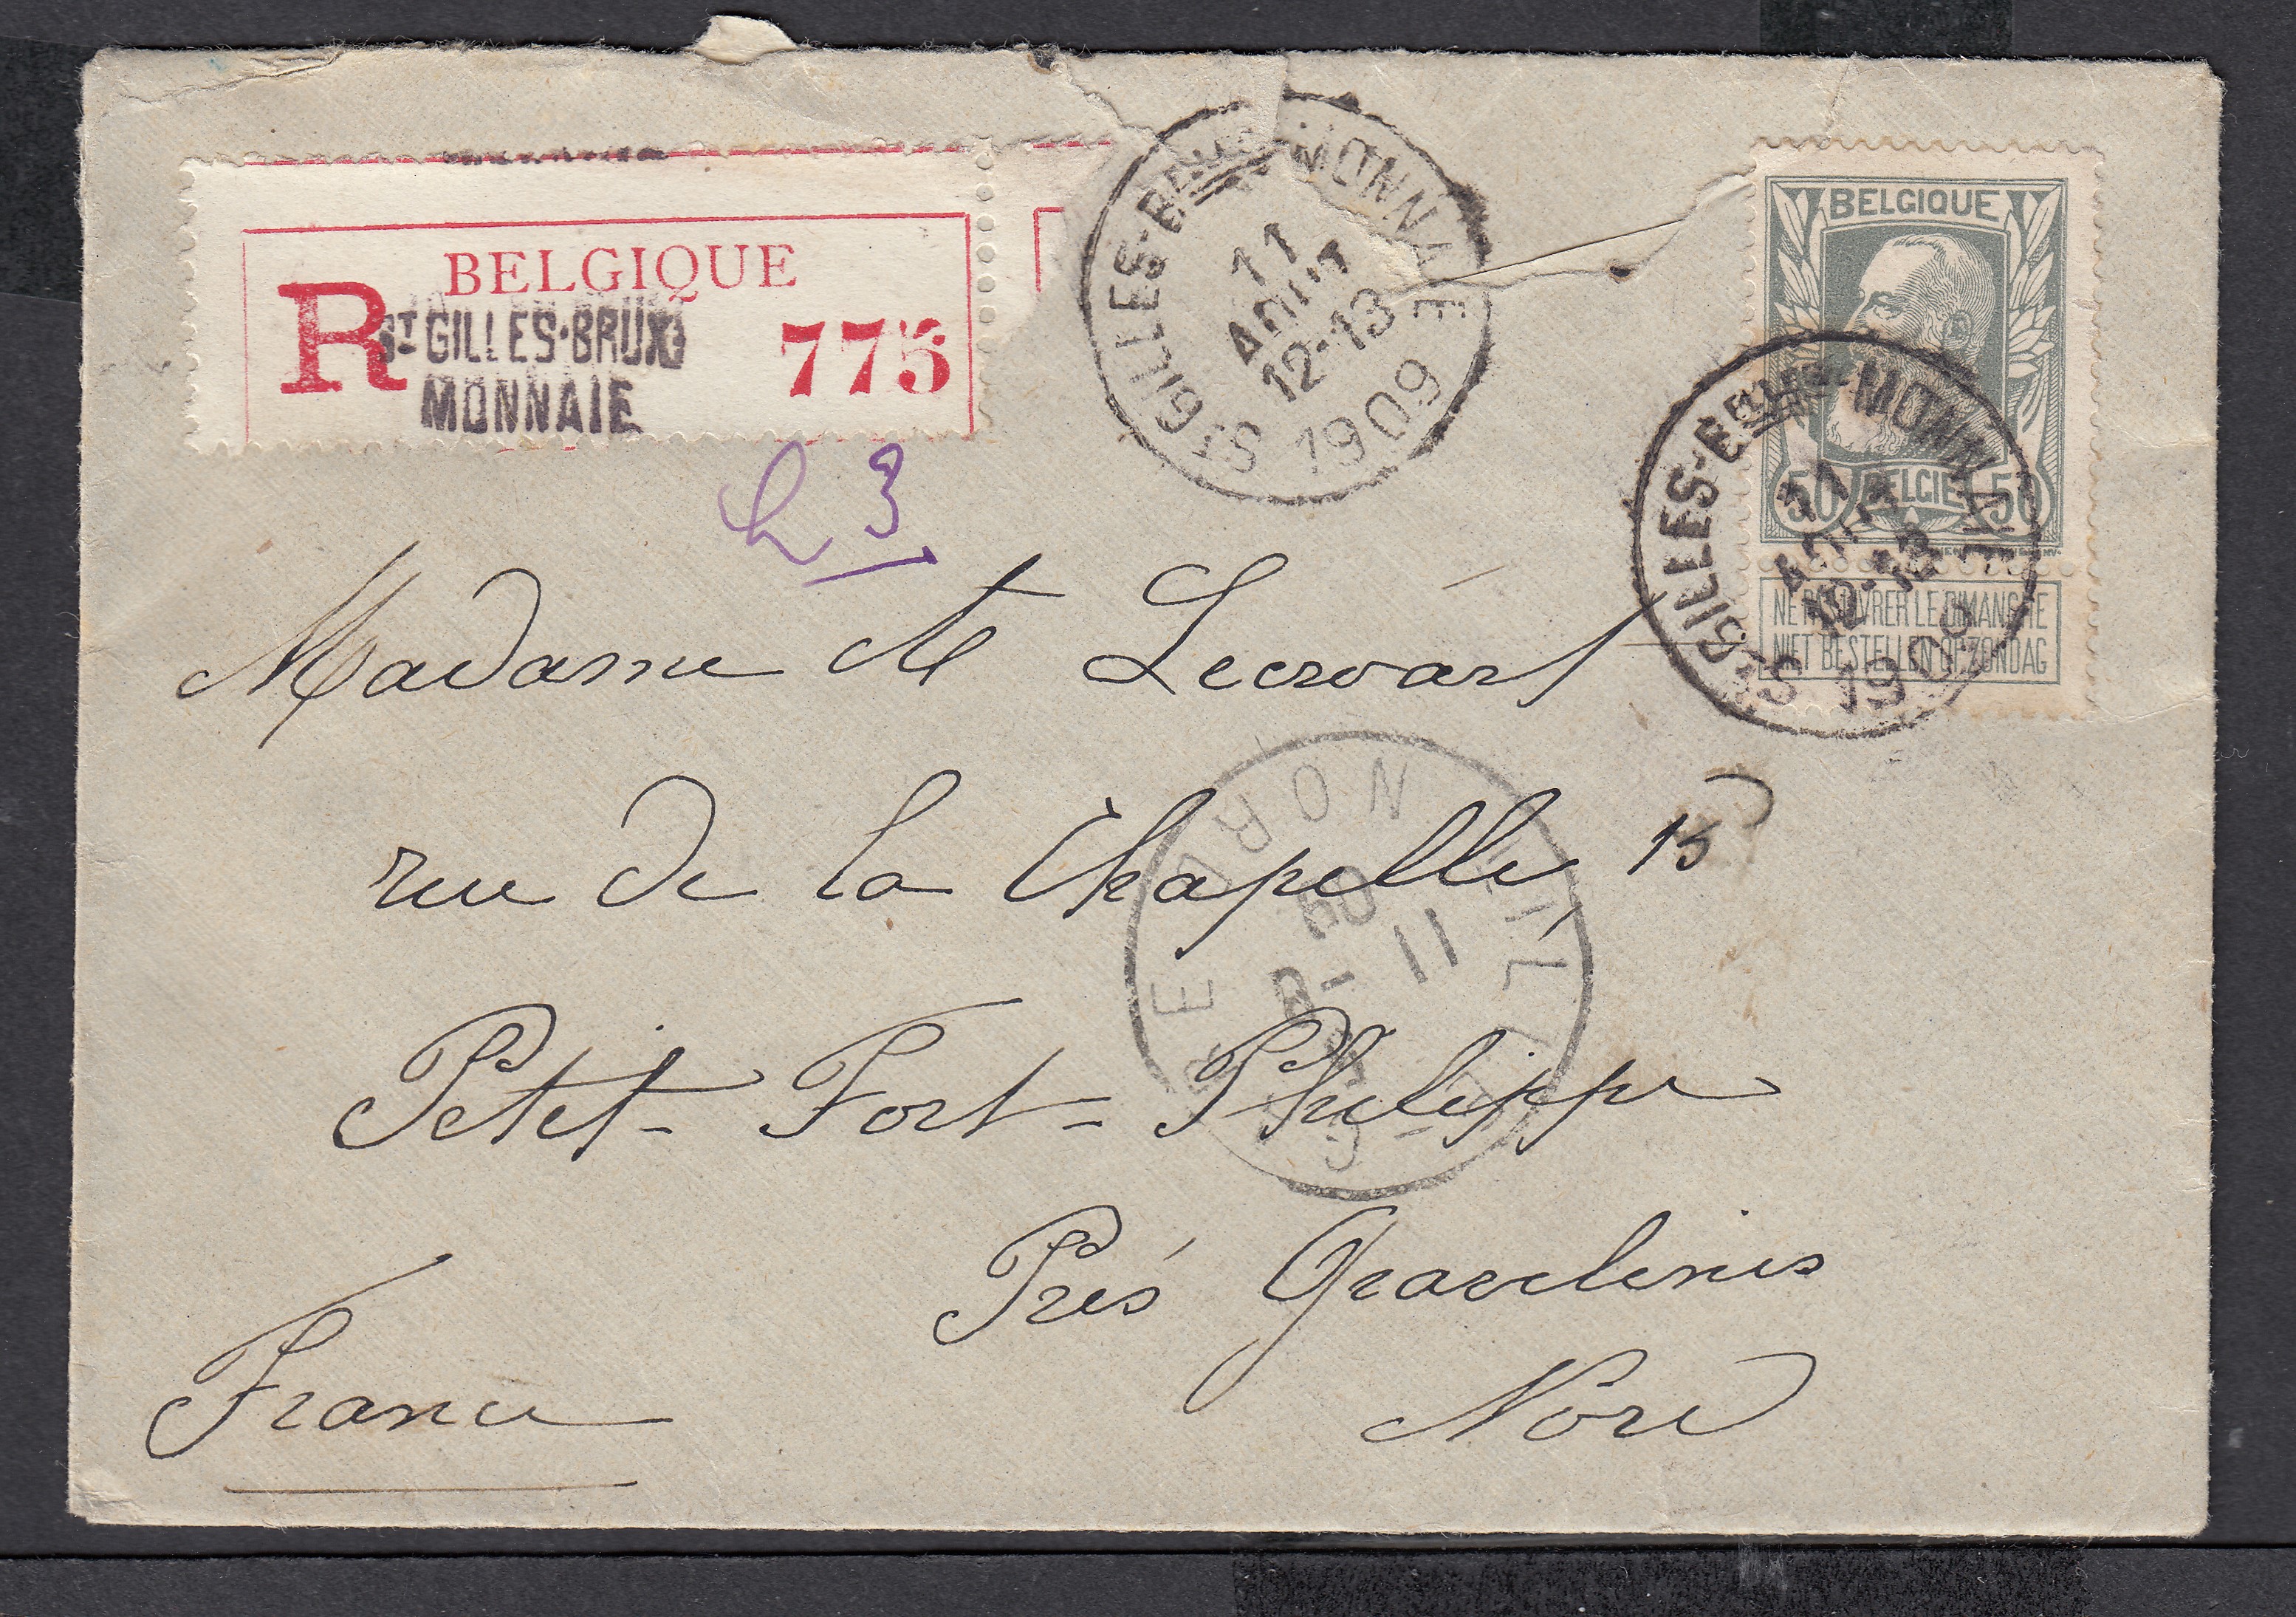 BELGIQUE
R
ST GILLES-BRUX
MONNAIE
775
ST GILLES-BRUX MONNAIE
11
AOUT
12-13
1909
BELGIQUE
50 BELGIE 50
NE PAS LIVRER LE DIMANCHE
NIET BESTELLEN OP ZONDAG
ST GILLES-BRUX MONNAIE
11
AOUT
12-13
1909
3
Madame Lecroart
rue de la Chapelle, 15
Petit-Fort-Philippe
Près Gravelines
Nord
France
LILLE GARE NORD
8-11
09